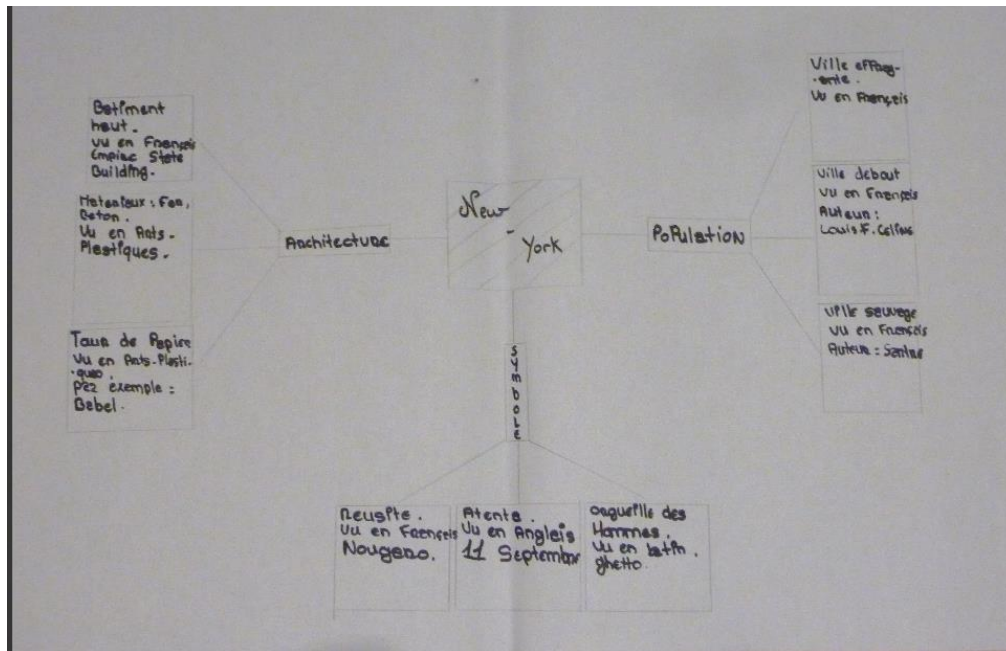 New
-
York
Architecture
Batiment
haut.
Vu en Français
Empiac State
Building.
Materiaux : Fer,
Beton.
Vu en Arts-
Plastiques.
Tour de Papire
Vu en Arts-Plasti-
-ques.
par exemple :
Babel.
Population
Ville effray-
-ante.
Vu en Français
Ville debout
Vu en Français
Auteur :
Louis F. Celine
Ville sauvage
Vu en Français
Auteur : Sartre
symbole
Reusite.
Vu en Français
Nougaro.
Atenta.
Vu en Anglais
11 Septembre
orgueille des
Hommes.
Vu en latin.
ghetto.